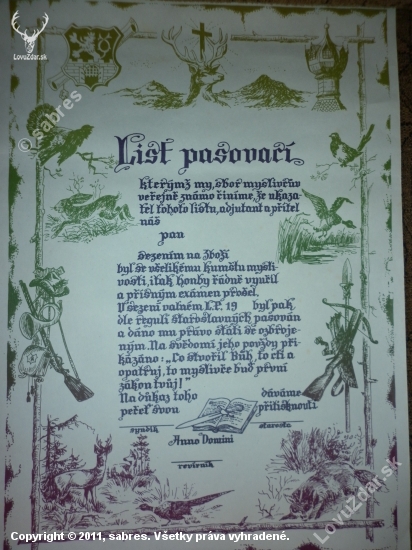 LovuZdar.sk
© sabres
List pasovací
kterýmž my, sbor myslivcův
veřejně známo činíme, že ukaza-
tel tohoto listu, adjutant a přítel
náš
pan
sezením na Zboží
byl se všelikému kumštu mysli-
vosti, i tak honby řádně vyučil
a přísným exámen prošel.
V sezení valném L.P. 19 byl pak
dle reguli staroslavných pasován
a dáno mu právo státi se ozbroje-
ným. Na svědomí jeho povždy při-
kázáno: „Co stvořil Bůh, to cti a
opatruj, to myslivče buď první
zákon tvůj!"
Na důkaz toho dáváme
pečeť svou přitisknouti
syndik starosta
Anno Domini
revírník
LovuZdar.sk
Copyright © 2011, sabres. Všetky práva vyhradené.